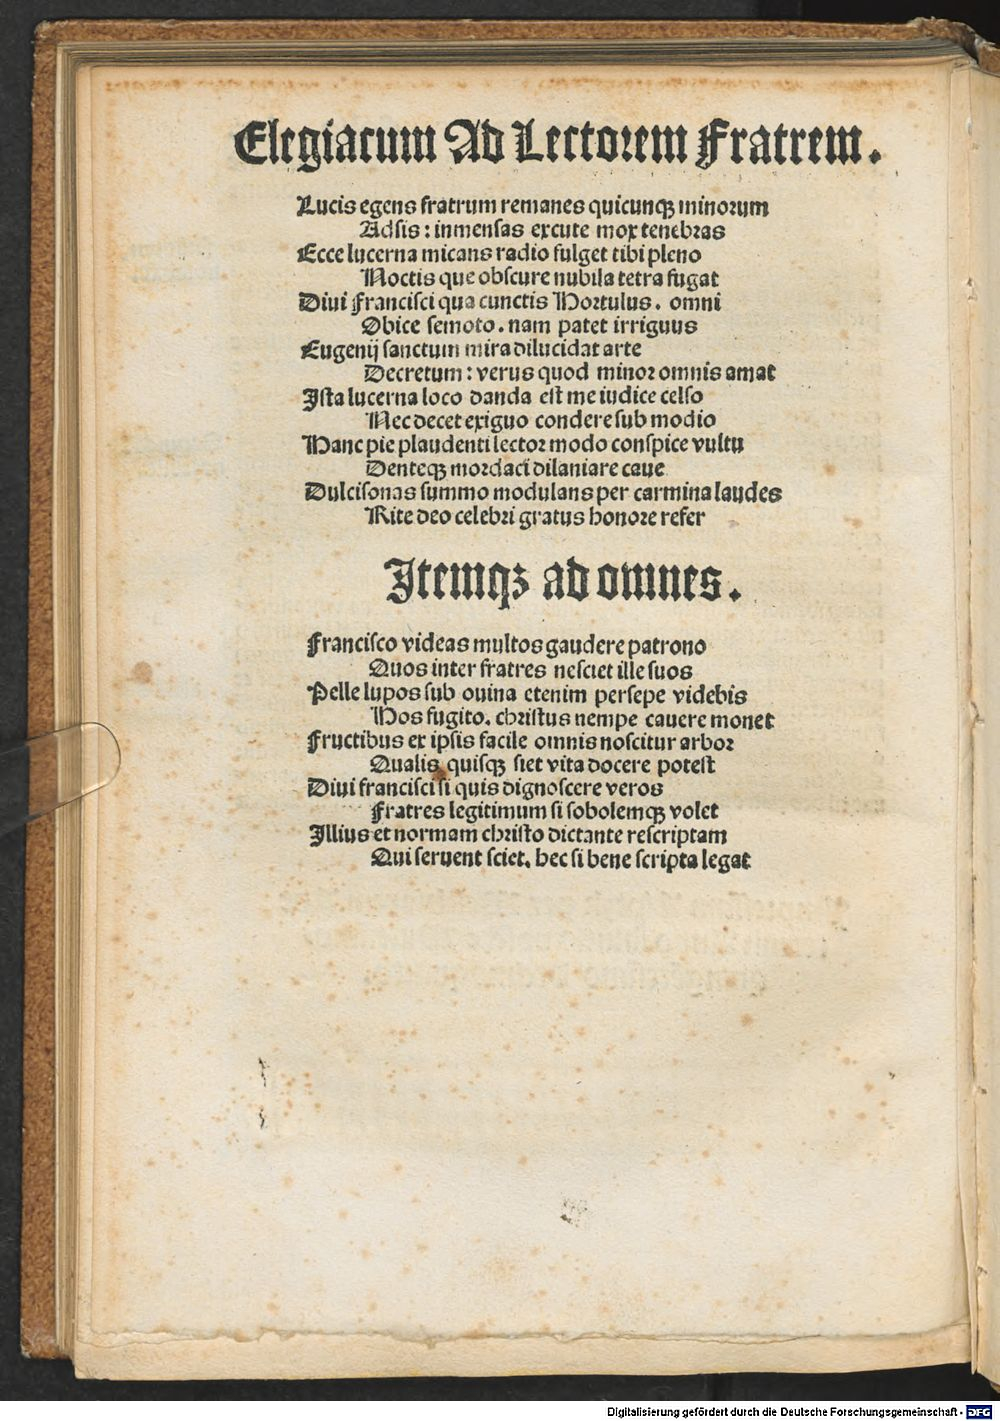 Elegiacum Ad Lectorem Fratrem.
Lucis egens fratrum remanes quicunqꝫ minorum
Adsis: inmensas excute mox tenebras
Ecce lucerna micans radio fulget tibi pleno
Noctis que obscure nubila tetra fugat
Diui Francisci qua cunctis Hortulus. omni
Obice semoto. nam patet irriguus
Eugenij sanctum mira dilucidat arte
Decretum: verus quod minor omnis amat
Ista lucerna loco danda est me iudice celso
Nec decet exiguo condere sub modio
Hanc pie plaudenti lector modo conspice vultu
Denteqꝫ mordaci dilaniare caue
Dulcisonas summo modulans per carmina laudes
Rite deo celebri gratus honore refer
Itemqꝫ ad omnes.
Francisco videas multos gaudere patrono
Quos inter fratres nesciet ille suos
Pelle lupos sub ouina etenim persepe videbis
Hos fugito. christus nempe cauere monet
Fructibus ex ipsis facile omnis noscitur arbor
Qualis quisqꝫ siet vita docere potest
Diui francisci si quis dignoscere veros
Fratres legitimum si sobolemqꝫ volet
Illius et normam christo dictante rescriptam
Qui seruent sciet. hec si bene scripta legat
Digitalisierung gefördert durch die Deutsche Forschungsgemeinschaft - DFG